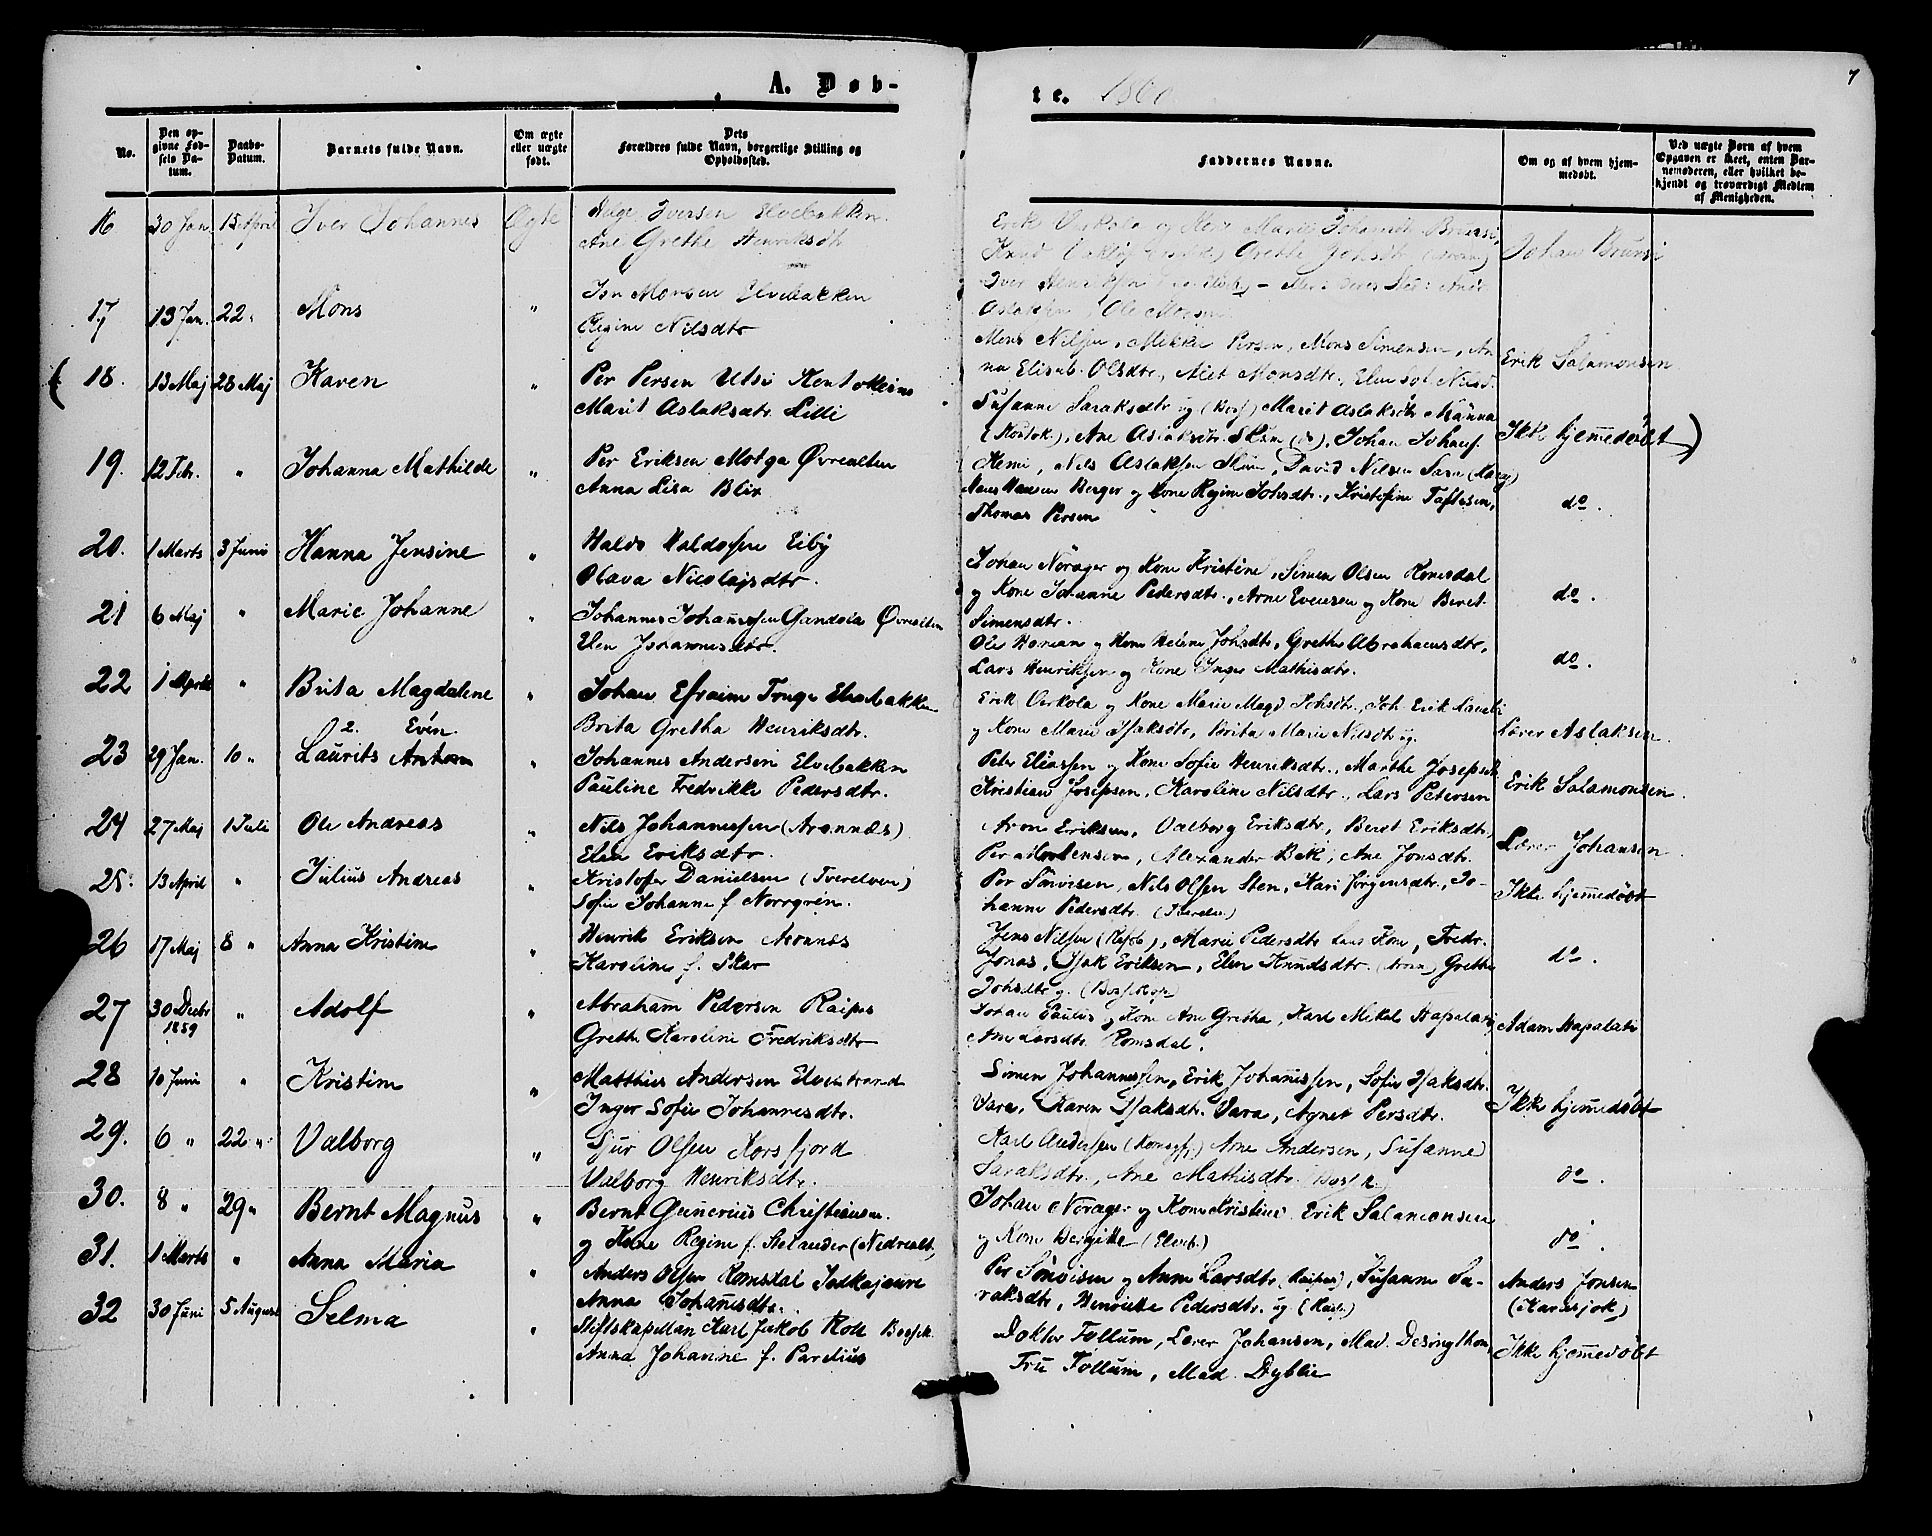 A. Døb-
te. 1860
7
No.
Den op-
givne Fød-
sels Da-
tum.
Daabs-
Datum.
Barnets fulde Navn.
Om ægte
eller uægte
født.
Dets
Forældres fulde Navn, borgerlige Stilling og
Opholdssted.
Faddernes Navne.
Om og af hvem hjem-
medøbt.
Ved uægte Børn af hvem
Opgaven er skeet, enten Bar-
nemoderen, eller hvilket be-
kjendt og troværdigt Medlem
af Menigheden.
16 30 Jan. 15 April Iver Johannes Ægte
Iversen Elvebakken
Ane Grethe Henriksdtr
Erik Verkola og Marie Johansdtr
Grethe Johsdtr
Johan Bruusi
17 13 Jan. 22 " Mons "
Monsen Elvebakken
Regine Nilsdtr
Iver Henriksen
Aslaksen, Ole Monsen
18. 13 Maj 28 Maj Karen "
Per Persen Utsi Koutokeino
Marit Aslaksdtr. Lille
Mons Nilsen, Mikkel Persen, Mons Simensen, An-
na Elisab. Olsdtr., Alet Monsdtr., Elen Nilsd.
Erik Salamonsen
19. 12 Febr. " Johanna Mathilde "
Per Eriksen Motga Øvrealten
Anna Lisa Blix
Susanne Saraksdtr ug (Boss) Marit Aslaksdtr Männa
(Koutok), Ane Aslaksdtr. Skum (do), Johan Johans.
Hemi, Nils Aslaksen Skum, David Nilsen Sara
Ikke hjemmedøbt)
Hans Hansen Berger og Kone Regine Johsdtr., Kristofine Toftesen,
Thomas Persen
do.
20. 1 Marts 3 Juni Hanna Jensine "
Haldo Haldosen Eiby
Olava Nicolajsdtr.
Johan Nörager og Kone Kristine, Simen Olsen Romsdal
og Kone Johanne Pedersdtr., Arne Evensen og Kone Beret
Simensdtr.
do.
21 6 Maj " Marie Johanne "
Johannes Johannesen Gandola Øvrealten
Elen Johannesdtr.
Ole Hansen og Kone Helene Johsdtr, Grethe Abrahamsdtr,
Lars Henriksen og Kone Inger Mathisdtr.
do.
22 1 April " Brita Magdalene "
Johan Efraim Fonge Elvebakken
Brita Gretha Henriksdtr.
Erik Verkola og Kone Marie Magd Johsdtr., Joh. Erik
og Kone Marie Isaksdtr, Brita Marie Nilsdtr ug.
Lærer Aslaksen
2. Even.
23 29 Jan. 10 " Laurits Anton "
Johannes Andersen Elvebakken
Pauline Fredrikke Pedersdtr.
Peter Eliassen og Kone Sofie Henriksdtr., Marthe Josepsdtr
Kristian Josepsen, Karoline Nilsdtr., Lars Petersen
Erik Salamonsen
24 27 Maj 1 Juli Ole Andreas "
Nils Johannessen (Aronnæs)
Elen Eriksdtr.
Aron Eriksen, Valborg Eriksdtr, Beret Eriksdtr,
Per Mortensen, Alexander Bek, Ane Jonsdtr.
Lærer Johansen
25. 13 April " Julius Andreas "
Kristofer Danielsen (Tverelven)
Sofie Johanne f Norrgren.
Per Sönvisen, Nils Olsen Sten, Kari Jörgensdtr., Jo-
hanne Pedersdtr. (Tverelv.)
Ikke hjemmedöbt
26 17 Maj 8 " Anna Kristine "
Henrik Eriksen Aronnæs
Karoline f. Skar
Jens Nilsen, Marie Pedersdtr Lars Kone, Fredr.
Jonas, Isak Eriksen, Elen Knudsdtr. (Aronn) Grethe
Johsdtr ug. (Bossekop)
do.
27 30 Decbr 1859 " Adolf "
Abraham Pedersen Raipas
Grethe Karoline Fredriksdtr
Johan Paulus og Kone Ane Gretha, Karl Mikal Hapalati,
Ane Larsdtr Romsdal.
Adam Hapalati
28 10 Juni " Kristine "
Matthis Andersen Elvestrand
Inger Sofie Johannesdtr.
Simen Johannessen, Erik Johannessen, Sofie Isaksdtr.
Vara, Karen Isaksdtr. Vara, Agnet Persdtr.
Ikke hjemmedöbt
29. 6 " 22 " Valborg "
Sjur Olsen Korsfjord
Valborg Henriksdtr.
Karl Andersen (Kongsfj.) Ane Andersen, Susanne
Saraksdtr., Ane Mathisdtr.
do.
30. 8 " 29 " Bernt Magnus "
Bernt Gunerius Christiansen
og Kone Regine f. Stelander (Nedrealt.)
Johan Norager og Kone Kristine. Erik Salamonsen
og Kone Bergitte (Elveb.)
do.
31. 1 Marts " Anna Maria "
Anders Olsen Romsdal Jadkajaure
Anna Johannesdtr.
Per Sönvisen og Anne Larsdtr (Raipas), Susanne Sa-
raksdtr, Henrikke Pedersdtr. ug (Raip.)
Anders Jonsen
(Karasjok)
32 30 Juni 5 August Selma "
Stiftskapellan Karl Jakob Rode Bossek.
Anna Johanne f. Parelius
Doktor Follum, Lærer Johansen, Mad. Desingthon,
Fru Follum, Mad. Dyblie
Ikke hjemmedöbt